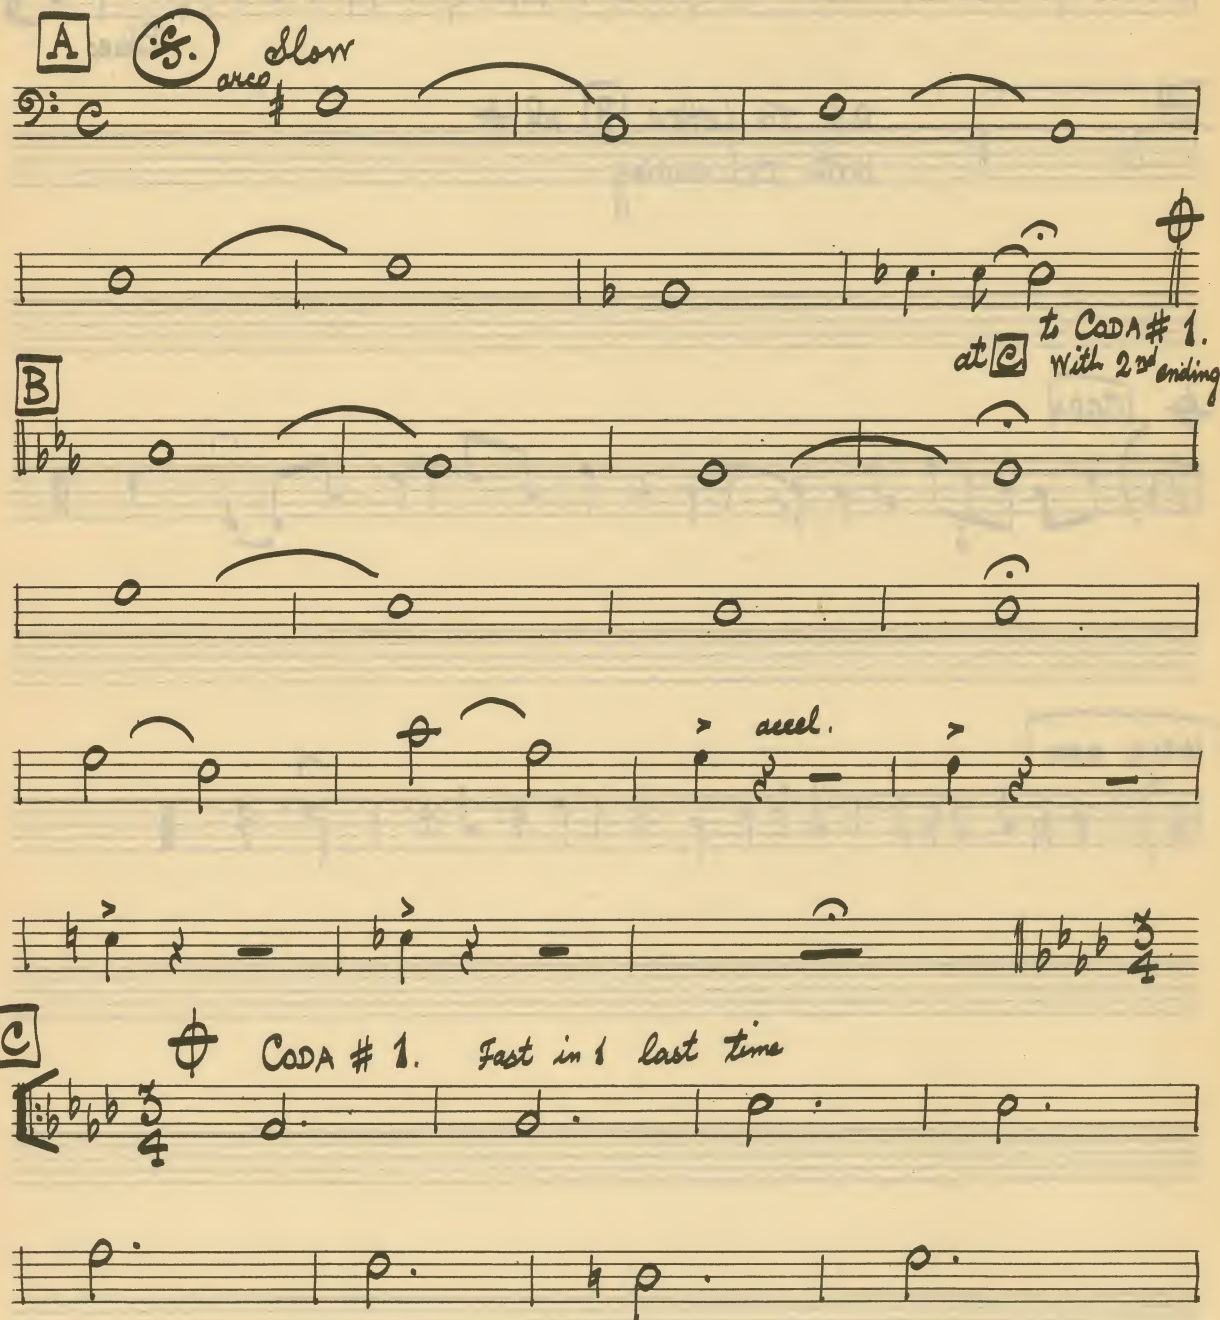 A Slow
arco
to CODA # 1.
at C With 2nd ending
B
accel.
3
4
C CODA # 1. Fast in 1 last time
3
4